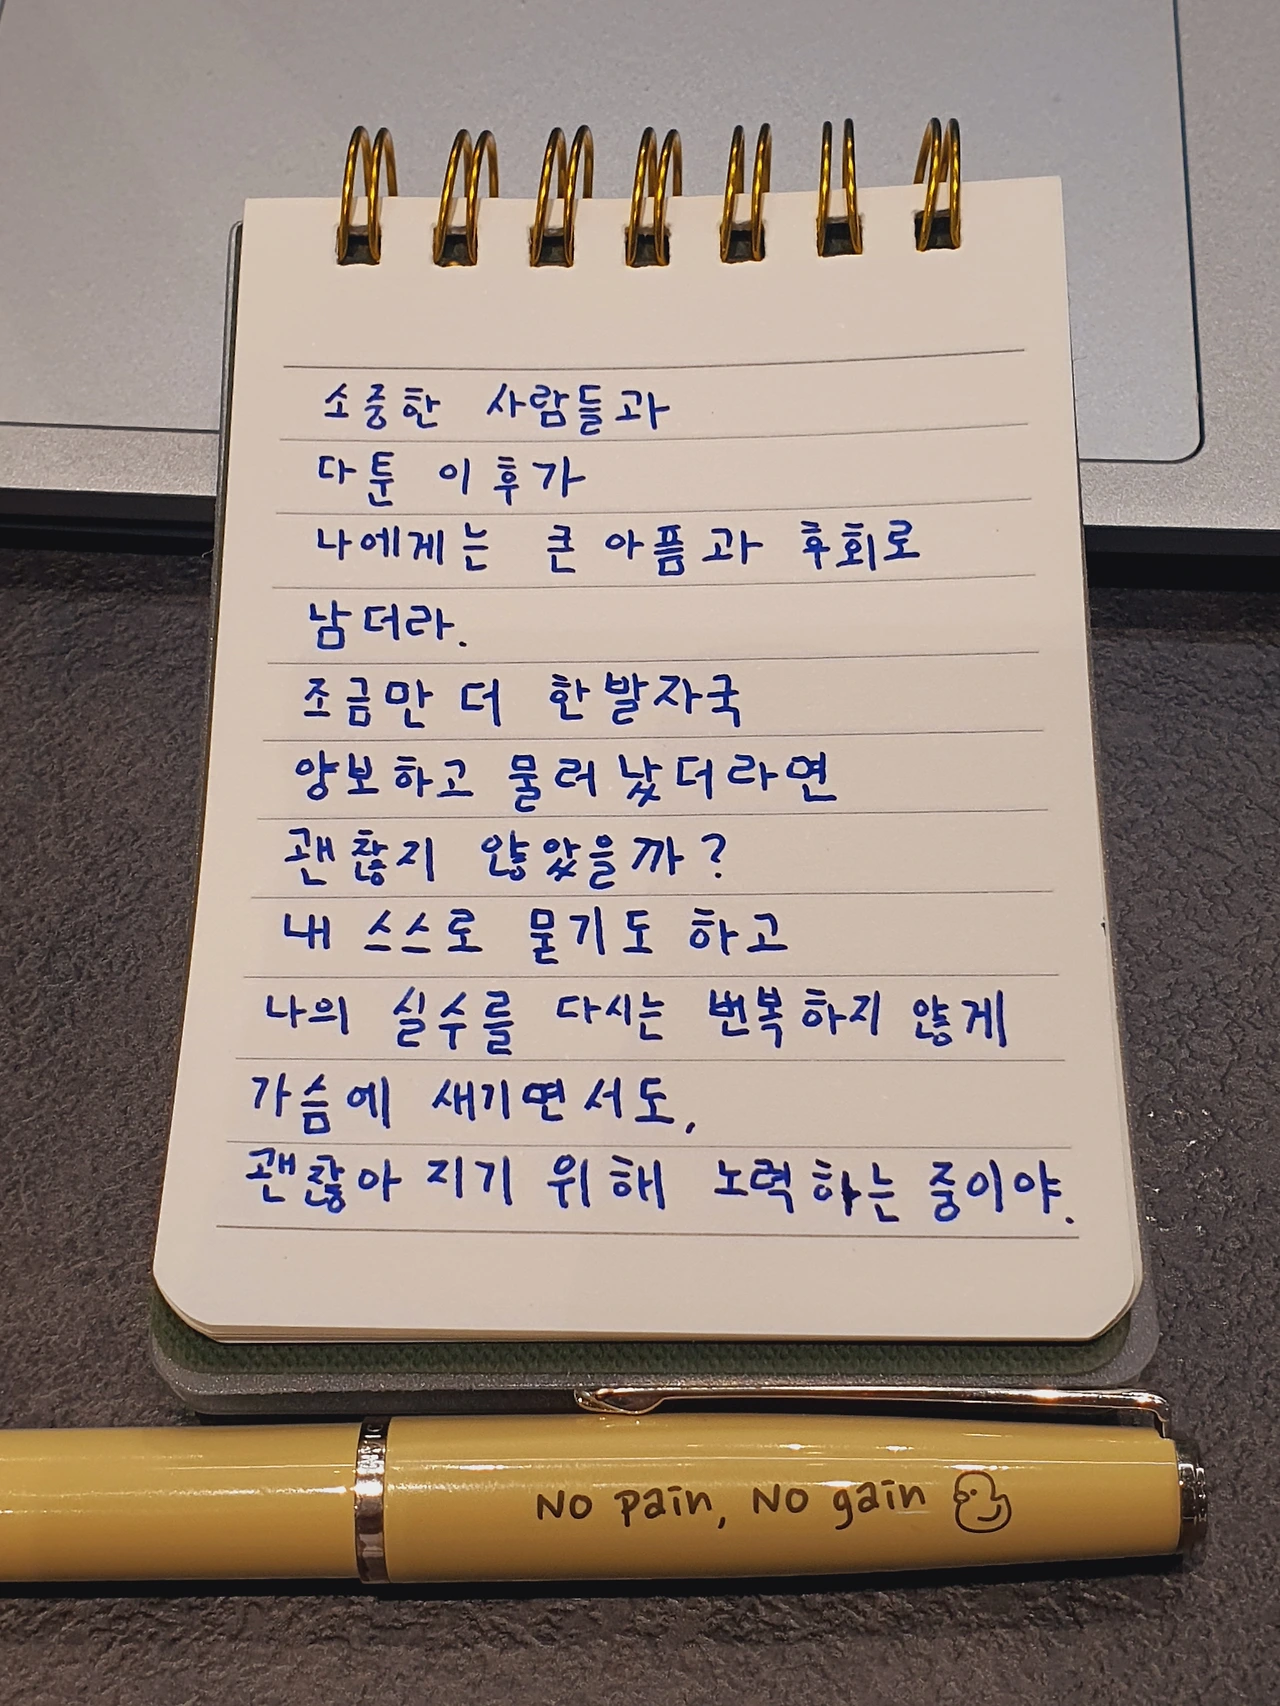 소중한 사람들과
다툰 이후가
나에게는 큰 아픔과 후회로
남더라.
조금만 더 한발자국
양보하고 물러났더라면
괜찮지 않았을까?
내 스스로 묻기도 하고
나의 실수를 다시는 번복하지 않게
가슴에 새기면서도,
괜찮아 지기 위해 노력하는 중이야.
No pain, No gain